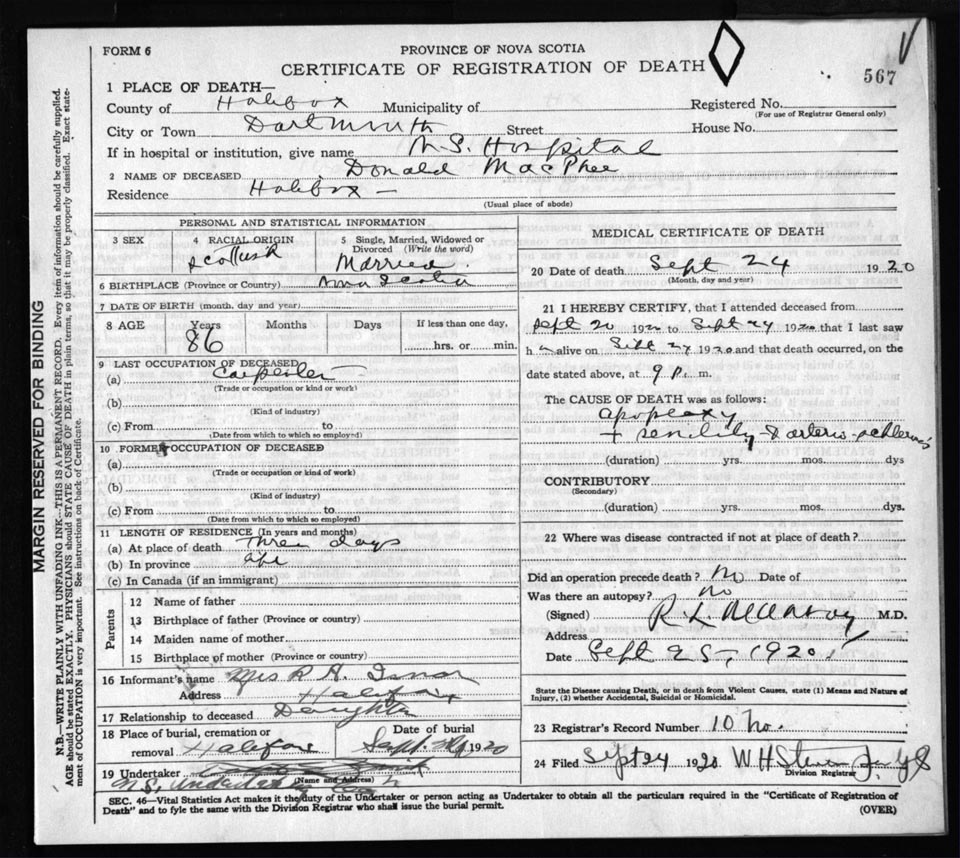 FORM 6
PROVINCE OF NOVA SCOTIA
CERTIFICATE OF REGISTRATION OF DEATH
567
1 PLACE OF DEATH—
County of Halifax Municipality of Registered No.
(For use of Registrar General only)
City or Town Dartmouth Street House No.
If in hospital or institution, give name N.S. Hospital
2 NAME OF DECEASED Donald MacPhee
Residence Halifax —
(Usual place of abode)
PERSONAL AND STATISTICAL INFORMATION
3 SEX 4 RACIAL ORIGIN 5 Single, Married, Widowed or Divorced (Write the word)
Scottish Married
6 BIRTHPLACE (Province or Country) Nova Scotia
7 DATE OF BIRTH (month, day and year)
8 AGE Years Months Days If less than one day,
86 hrs. or min.
9 LAST OCCUPATION OF DECEASED
(a) Carpenter
(Trade or occupation or kind or work)
(b)
(Kind of industry)
(c) From to
(Date from which to which so employed)
10 FORMER OCCUPATION OF DECEASED
(a)
(Trade or occupation or kind of work)
(b)
(Kind of industry)
(c) From to
(Date from which to which so employed)
11 LENGTH OF RESIDENCE (In years and months)
(a) At place of death Three days
(b) In province
(c) In Canada (if an immigrant)
Parents
12 Name of father
13 Birthplace of father (Province or country)
14 Maiden name of mother
15 Birthplace of mother (Province or country)
16 Informant's name Mrs R H
Address Halifax
17 Relationship to deceased Daughter
18 Place of burial, cremation or removal Halifax
Date of burial Sept. 1920
19 Undertaker
(Name and Address)
N.S.
MEDICAL CERTIFICATE OF DEATH
20 Date of death Sept 24 1920
(Month, day and year)
21 I HEREBY CERTIFY, that I attended deceased from
Sept 20 1920 to Sept 24 1920 that I last saw
h alive on Sept 24 1920 and that death occurred, on the
date stated above, at 9 p. m.
The CAUSE OF DEATH was as follows:
apoplexy
+ senility & arterio-schlerosis
(duration) yrs. mos. dys
CONTRIBUTORY
(Secondary)
(duration) yrs. mos. dys.
22 Where was disease contracted if not at place of death?
Did an operation precede death? No Date of
Was there an autopsy? no
(Signed) R. L. M.D.
Address
Date Sept 25, 1920
State the Disease causing Death, or in death from Violent Causes, state (1) Means and Nature of
Injury, (2) whether Accidental, Suicidal or Homicidal.
23 Registrar's Record Number 10
24 Filed Sept 24 1920 W H
Division Registrar
SEC. 46—Vital Statistics Act makes it the duty of the Undertaker or person acting as Undertaker to obtain all the particulars required in the "Certificate of Registration of
Death" and to fyle the same with the Division Registrar who shall issue the burial permit.
(OVER)
MARGIN RESERVED FOR BINDING
N.B.—WRITE PLAINLY WITH UNFADING INK—THIS IS A PERMANENT RECORD. Every item of information should be carefully supplied.
AGE should be stated EXACTLY. PHYSICIANS should STATE CAUSE OF DEATH in plain terms, so that it may be properly classified. Exact statement of OCCUPATION is very important. See instructions on back of Certificate.